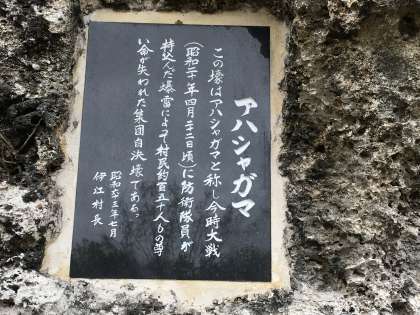 アハシャガマ
この壕はアハシャガマと称し今時大戦
(昭和二十年四月二十二日頃)に防衛隊員が
持込んだ爆雷によって村民約百五十人もの尊
い命が失われた集団自決壕である。
昭和五十三年七月
伊江村長